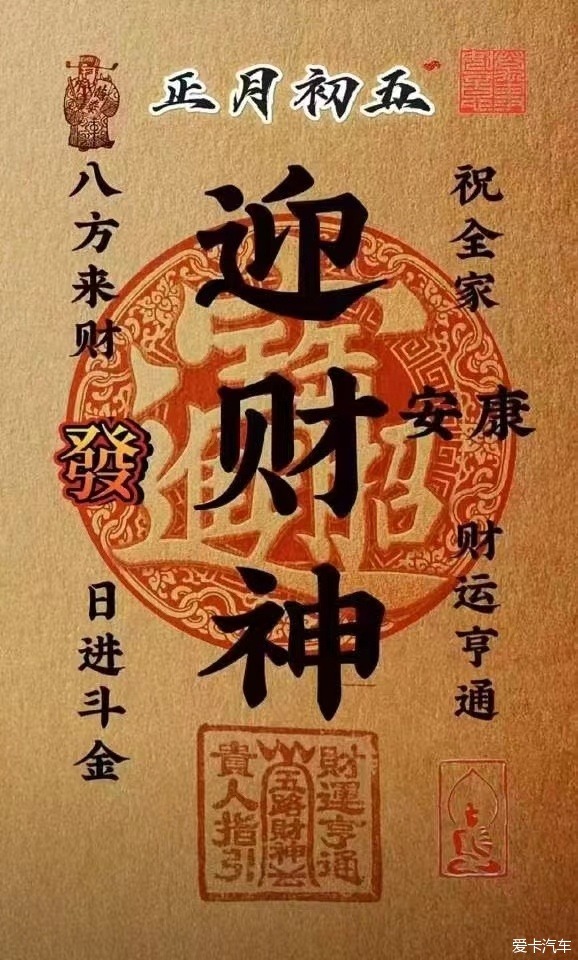 正月初五
祝全家
安康
财运亨通
迎财神
八方来财
發
日进斗金
招财进寶
財運亨通
五路財神
貴人指引
爱卡汽车